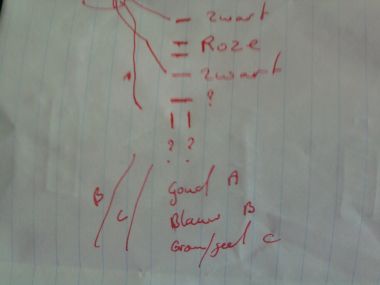 zwart
Roze
A zwart
?
? ?
B C Goud A
Blauw B
Groen/geel C